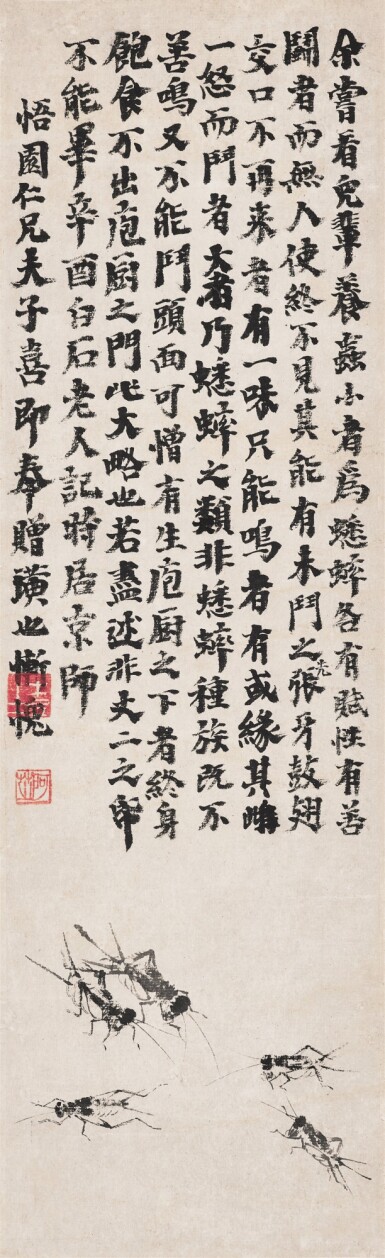 余嘗看兒輩養蟲小者為蟋蟀各有賦性有善
鬪者而無人使終不見其能有未鬥之先張牙鼓翅
交口不再来者有一味只能鳴者有或緣其雌
一怒而鬥者大者乃蟋蟀之類非蟋蟀種族既不
善鳴又不能鬥頭面可憎有生庖厨之下者終身
飽食不出庖厨之門此大略也若盡述非丈二之帋
不能畢辛酉白石老人記時居京師
悟園仁兄夫子喜即奉贈璜也慚愧